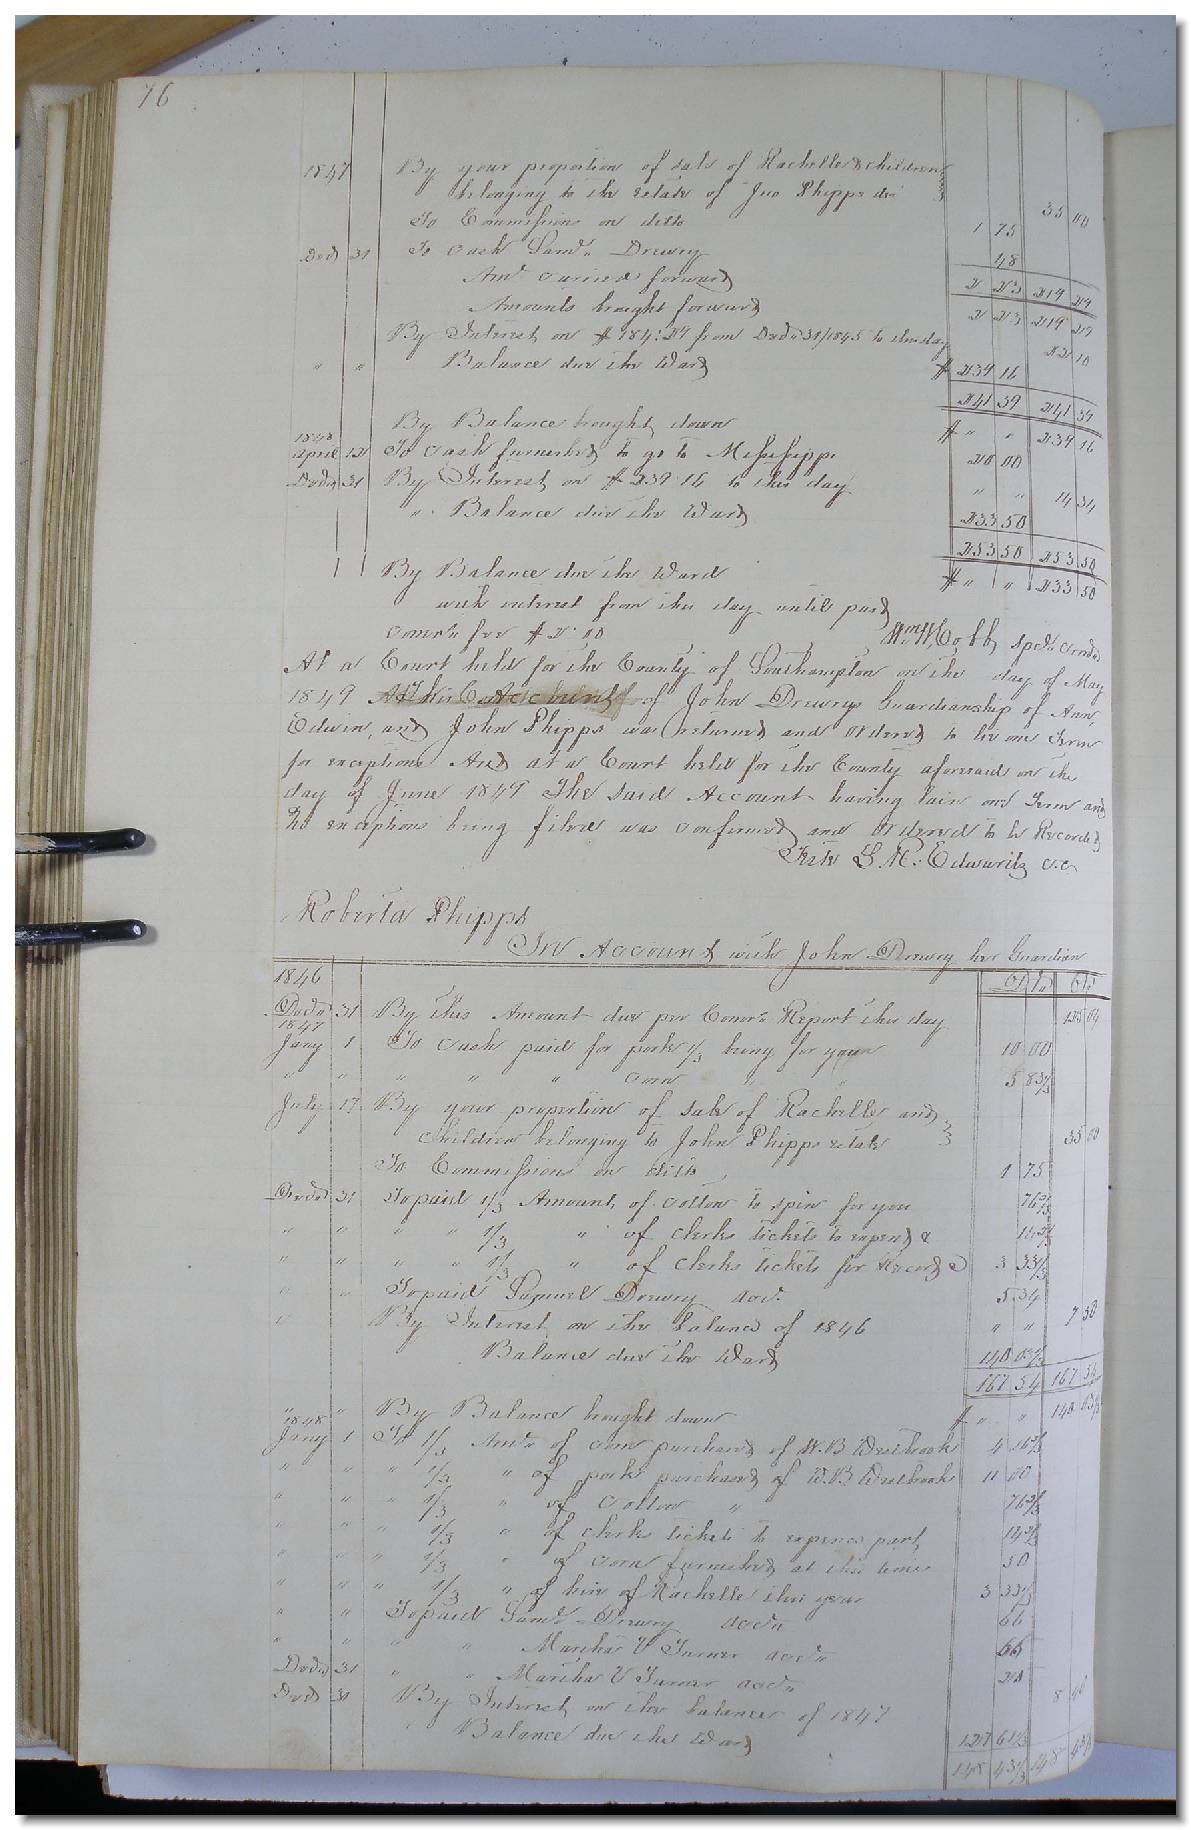 76
1847 By your proportion of sale of Rachelle & children
belonging to the estate of Jno Phipps dec 35 00
To Commissions on ditto 1 75
Decr 31 To Cash Saml. Drewry 48
Amt carried forward 2 23 219 29
Amounts brought forward 2 23 219 29
By Interest on $184:27 from Decr 31/1845 to this day 22 10
" " Balance due the Ward $ 239 16
241 39 241 39
By Balance brought down $ " " 239 16
1848
April 12 To Cash furnished to go to Missisippi 20 00
Decr 31 By Interest on $239 16 to this day " " 14 34
" Balance due the Ward 233 50
253 50 253 50
By Balance due the Ward $ " " 233 50
with interest from this day until paid
Comr. fee $2.00 Wm. W. Cobb Spcl. Comr
At a Court held for the County of Southampton on the day of May
1849 This Account of John Drewrys Guardianship of Ann,
Edwin, and John Phipps was returned and ordered to lie one Term
for exceptions And at a Court held for the County aforesaid on the
day of June 1849 The said Account having lain one Term and
no exceptions being filed was confirmed and ordered to be Recorded
Teste L. R. Edwards c.c.
Roberta Phipps
In Account with John Drewry her Guardian
1846 Dr Cr
Decr 31 By this Amount due per Comr. Report this day 125 04
1847
Jany 1 To Cash paid for pork 1/3 being for your 10 00
" " " " " Corn " " 5 83 1/3
July 17 By your proportion of sale of Rachelle and
children belonging to John Phipps estate 35 00
To Commissions on ditto 1 75
Decr 31 To paid 1/3 Amount, of Cotton to spin for you 76 2/3
" " " " 1/3 " of clerks tickets to &
" " " " 1/3 " of clerks tickets for Record & 3 33 1/3
" " To paid Samuel Drewry acct. 5 34
" By Interest on the balance of 1846 " " 7 50
Balance due the Ward 140
167 54 167 54
" " By Balance brought down $ " " 140
1848
Jany 1 To 1/3 Amt. of corn purchased of W. B Westbrook 4 16 2/3
" " " 1/3 " of pork purchased of W. B Westbrook 11 00
" " " 1/3 " of Cotton " 76 2/3
" " " 1/3 " of clerks tickets to part
" " " 1/3 " of corn furnished at this time 50
" " " 1/3 " of hire of Rachelle this year 3 33 1/3
" " To paid Saml Drewry acct. 66
" " " " Martha V Turner acct. 66
Decr 31 " " Martha V Turner acct.
Decr 31 By Interest on the balance of 1847 8 40
Balance due the Ward 127 61 1/3
148 43 1/3 148 43 1/3